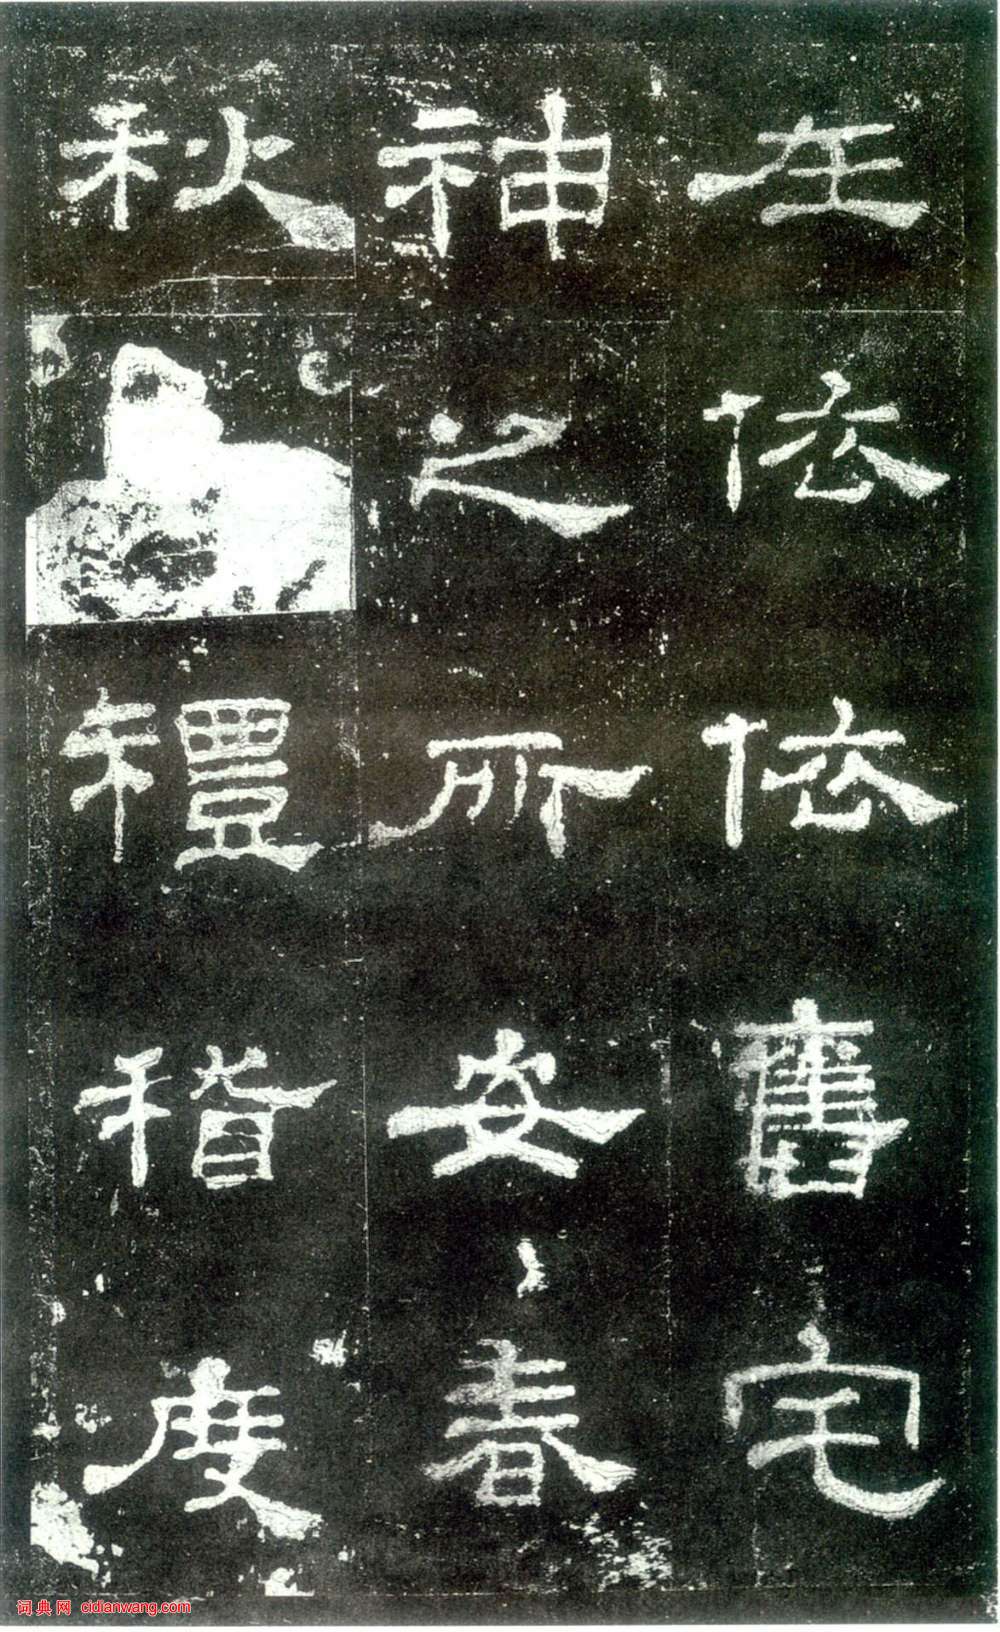 在依依舊宅
神之所安春
秋禮稽度
词典网 cidianwang.com